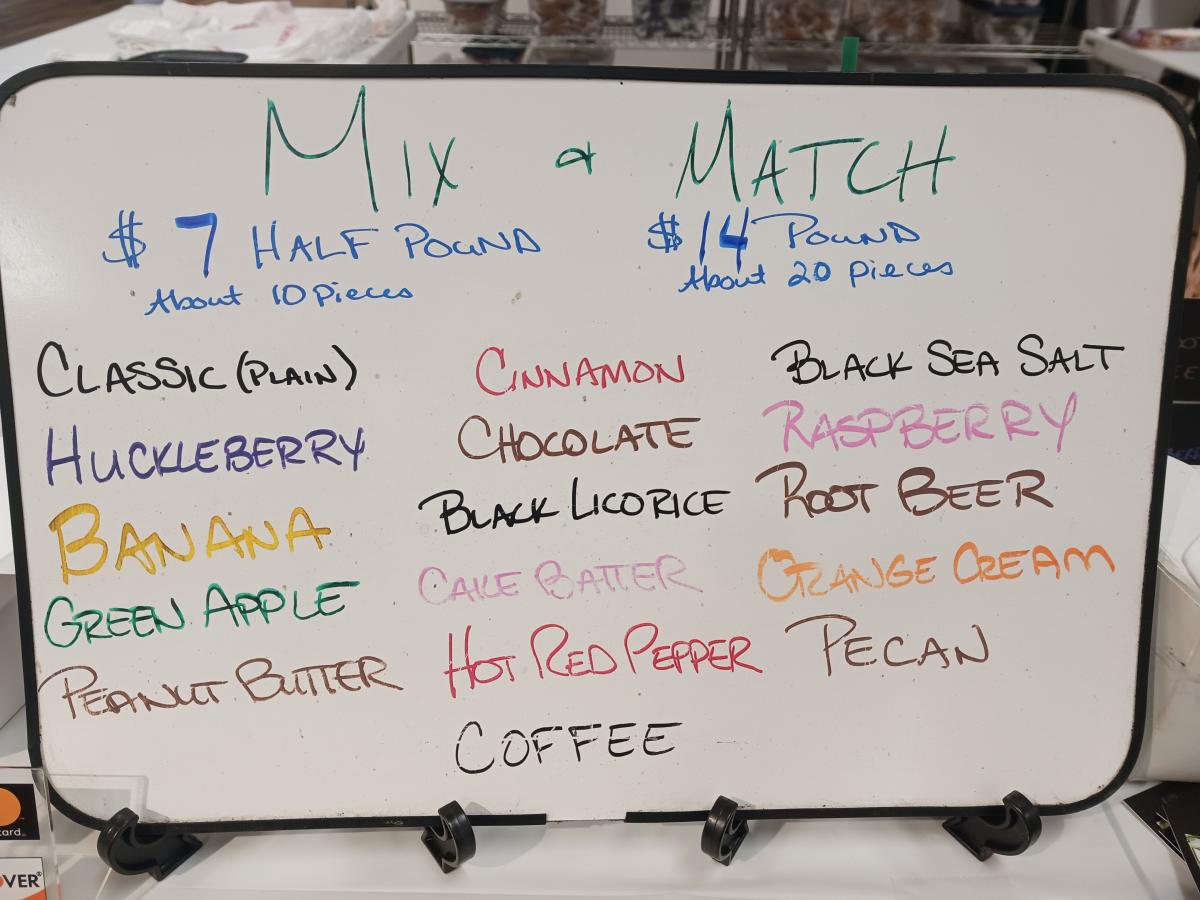 MIX & MATCH
$7 HALF POUND
About 10 pieces
$14 POUND
About 20 pieces
CLASSIC (PLAIN)
HUCKLEBERRY
BANANA
GREEN APPLE
PEANUT BUTTER
CINNAMON
CHOCOLATE
BLACK LICORICE
CAKE BATTER
HOT RED PEPPER
COFFEE
BLACK SEA SALT
RASPBERRY
ROOT BEER
ORANGE CREAM
PECAN
card
OVER®